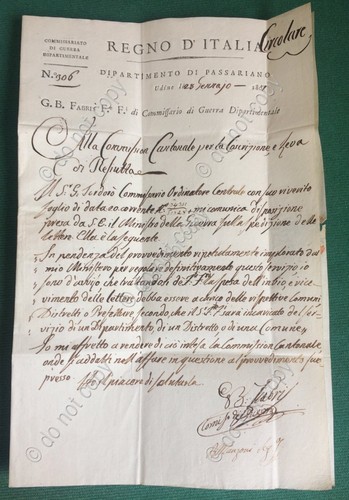 Circolare
COMMISSARIATO
DI GUERRA
DIPARTIMENTALE
REGNO D'ITALIA
N.º 306
DIPARTIMENTO DI PASSARIANO
Udine li 28 Gennajo
G. B. FABRIS F. F. di Commissario di Guerra Dipartimentale
Alla Commission Cantonale per la Coscrizione e Leva
di Resiutta
Il S.r G. Commissario Ordinatore Centrale con suo riverito
foglio di data 20 corrente mi comunica disposizione
presa da S. E. il Ministro della Guerra sulla spedizione delle
lettere. Ella è la seguente.
In pendenza del provvedimento ripetutamente implorato dal
mio Ministero per regolare definitivamente questo servizio
sono d'avviso che trattandosi di la spesa dell'invio e rice-
vimento delle lettere debba essere a carico delle rispettive Comuni
Distretti o Prefetture secondo che il sarà incaricato del Ser-
vizio di un Dipartimento, di un Distretto o di una Comune.
Io mi affretto a rendere di ciò intesa la Commission Cantonale
onde s'addatti nell'affare in questione al provvedimento su-
presso
Ho il piacere di salutarla.
G B. Fabris
do not copy
do not copy
do not copy
do not copy
do not copy